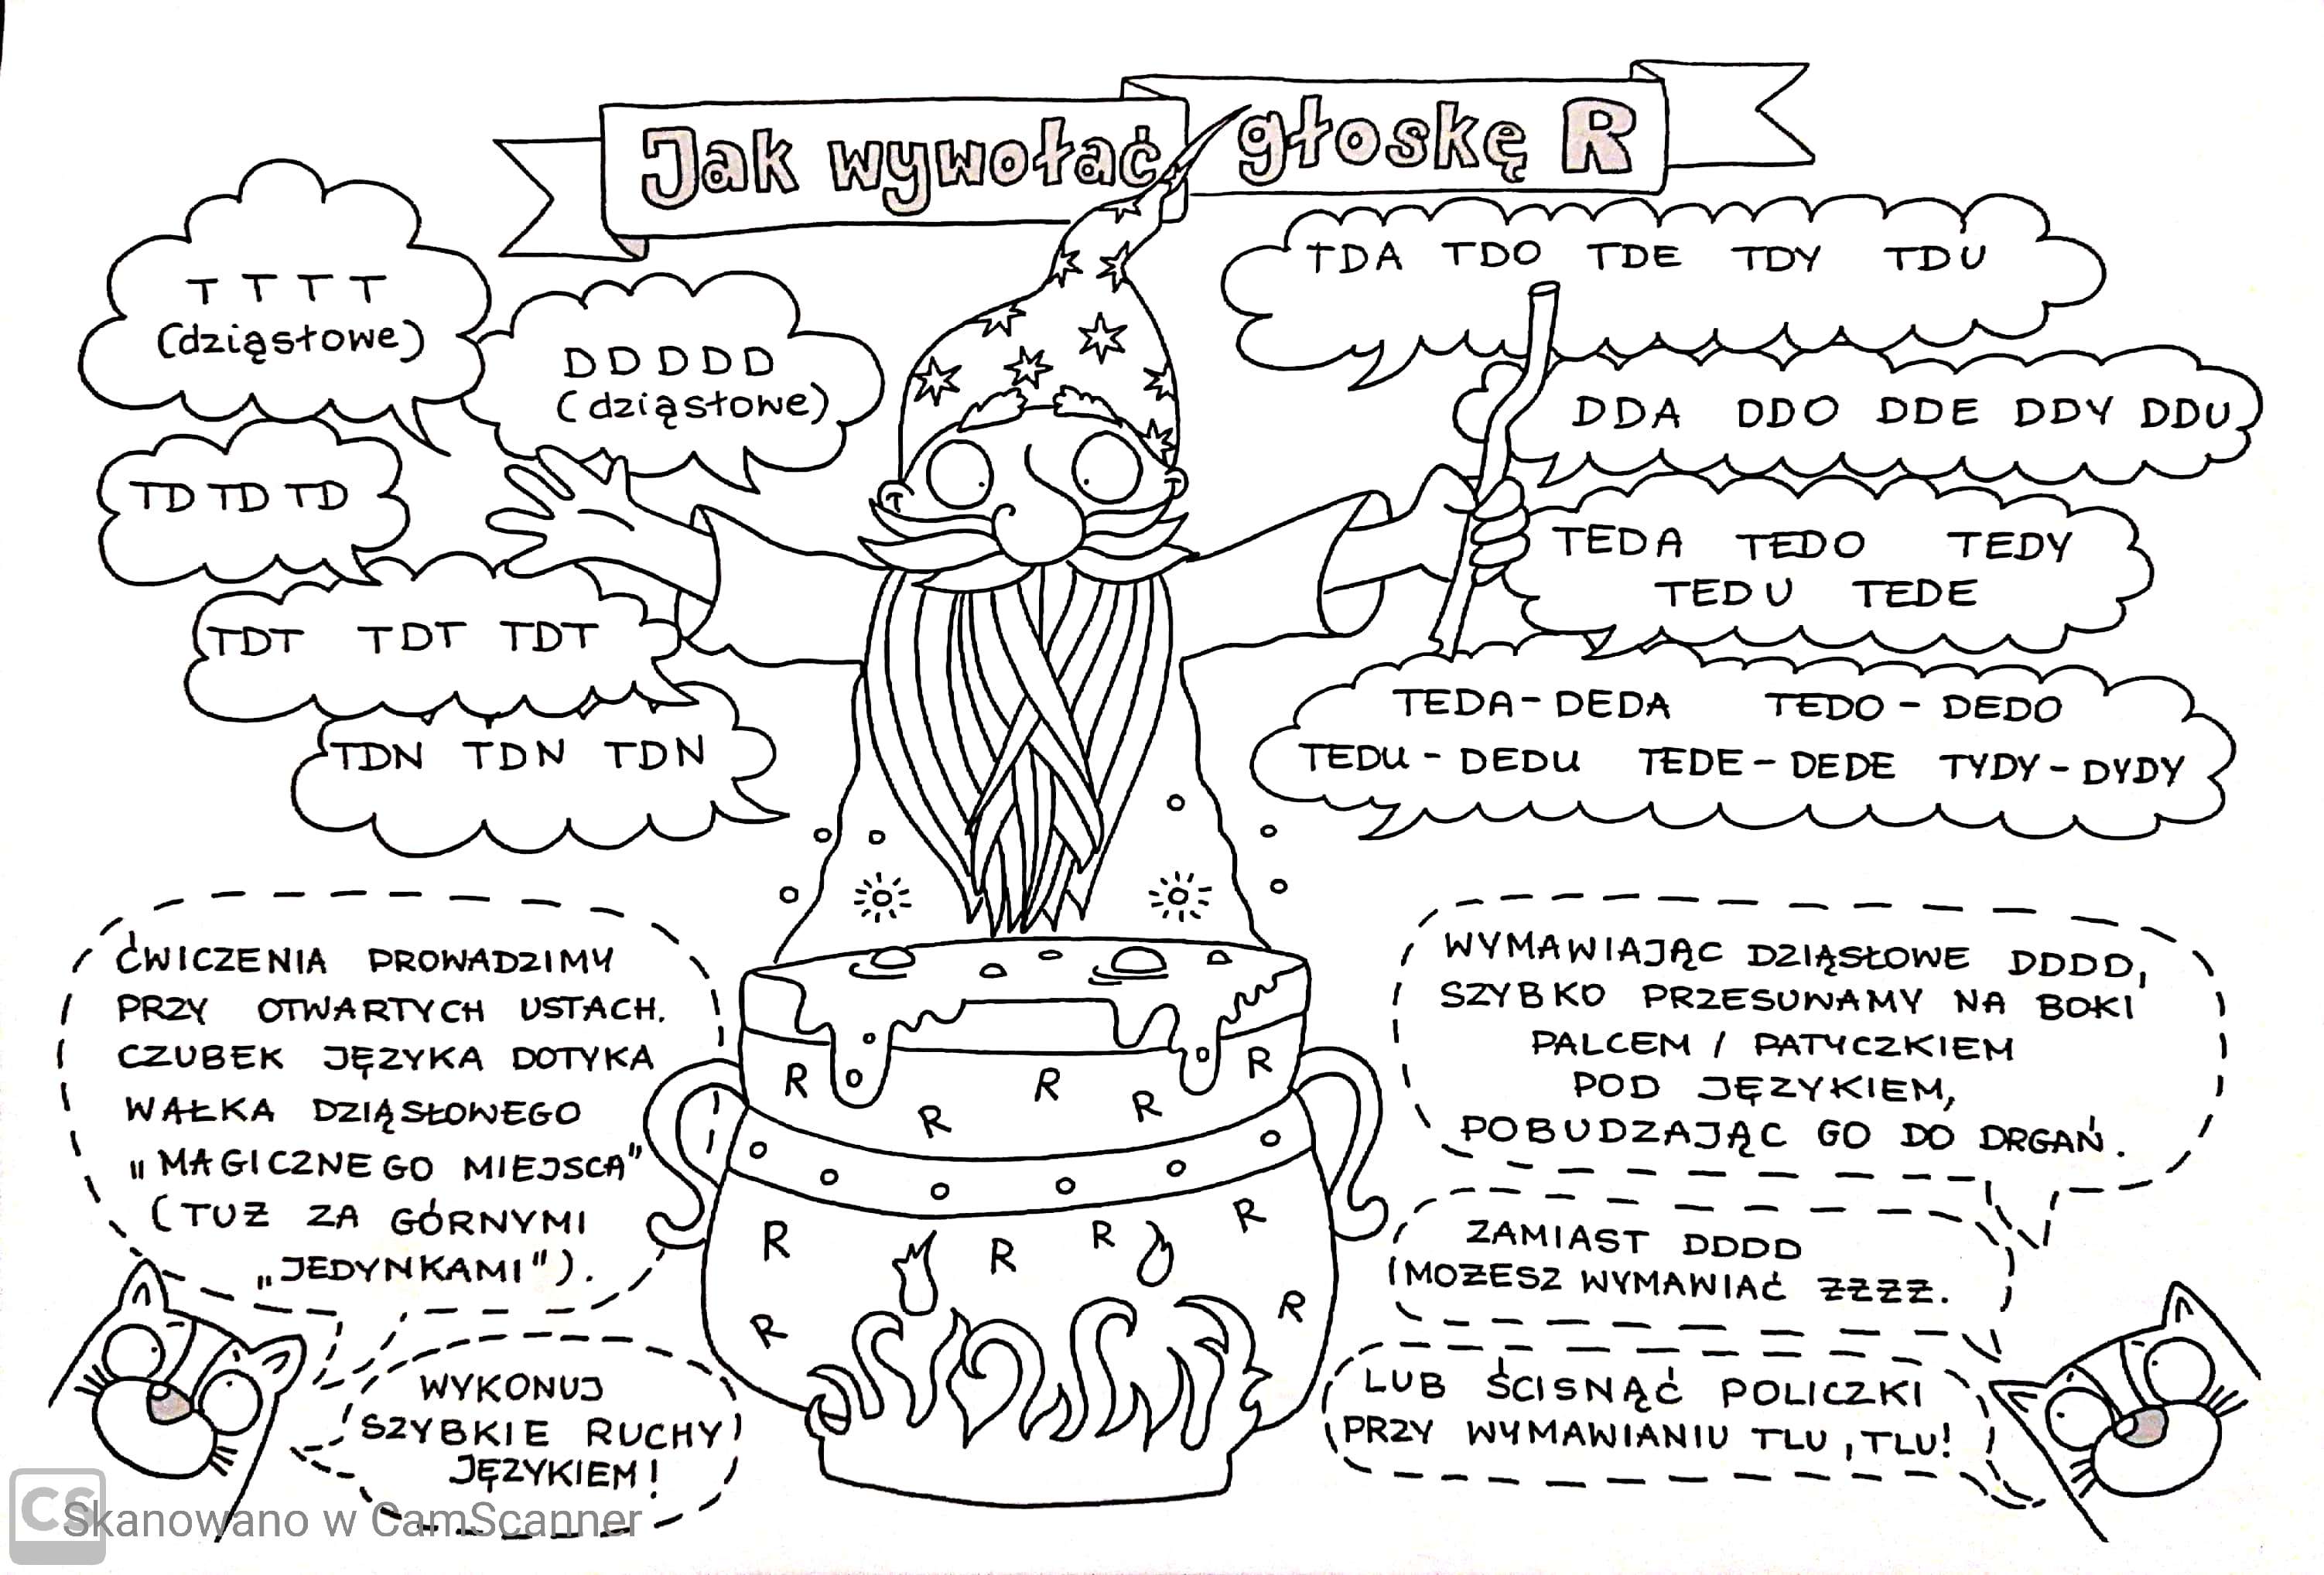 Jak wywołać głoskę R
T T T T
(dziąsłowe)
D D D D D
(dziąsłowe)
TD TD TD
TDT TDT TDT
TDN TDN TDN
TDA TDO TDE TDY TDU
DDA DDO DDE DDY DDU
TEDA TEDO TEDY
TEDU TEDE
TEDA-DEDA TEDO-DEDO
TEDU-DEDU TEDE-DEDE TYDY-DYDY
ĆWICZENIA PROWADZIMY
PRZY OTWARTYCH USTACH.
CZUBEK JĘZYKA DOTYKA
WAŁKA DZIĄSŁOWEGO
„MAGICZNEGO MIEJSCA”
(TUŻ ZA GÓRNYMI
„JEDYNKAMI”).
WYKONUJ
SZYBKIE RUCHY
JĘZYKIEM!
WYMAWIAJĄC DZIĄSŁOWE DDDD,
SZYBKO PRZESUWAMY NA BOKI
PALCEM / PATYCZKIEM
POD JĘZYKIEM,
POBUDZAJĄC GO DO DRGAŃ.
ZAMIAST DDDD
MOŻESZ WYMAWIAĆ ŻŻŻŻ.
LUB ŚCISNĄĆ POLICZKI
PRZY WYMAWIANIU TLU, TLU!
R R R R R
R R R R
R R
CS Skanowano w CamScanner